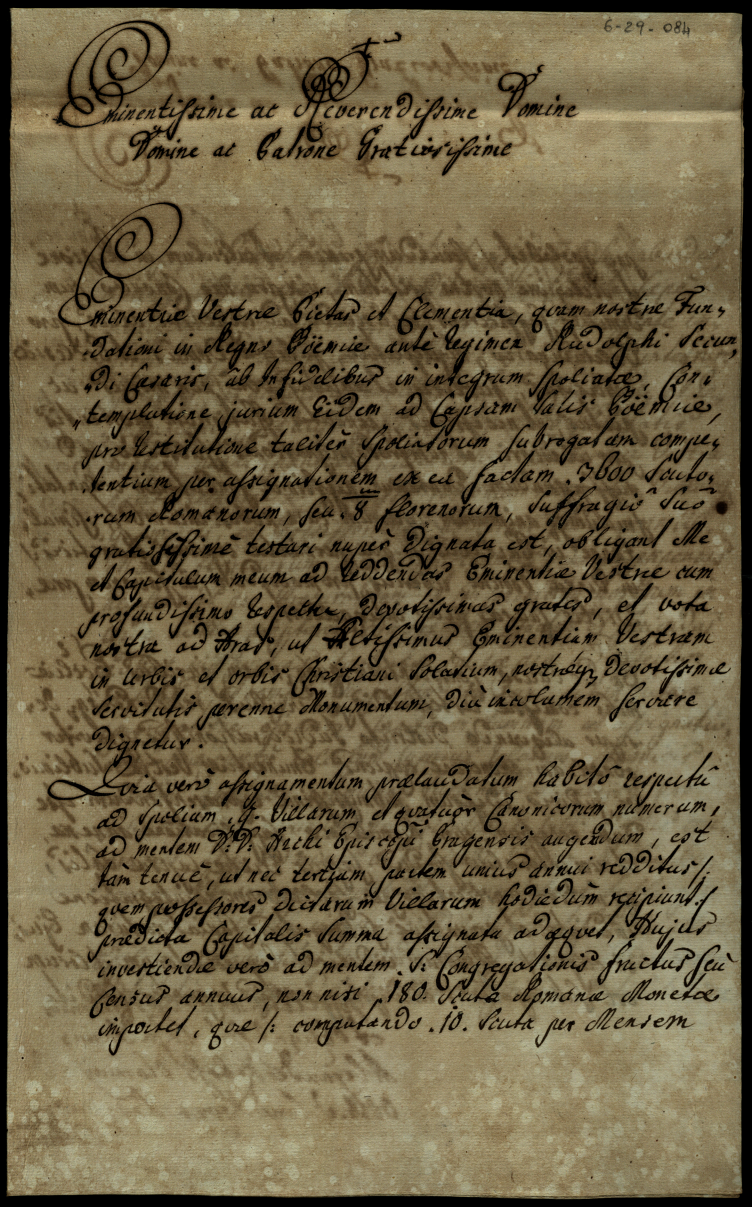 6-29-084
Eminentissime ac Reverendissime Domine
Domine ac Patrone Gratiosissime
Eminentiæ Vestræ Pietas et Clementia, quam nostræ Fun„
„dationi in Regno Boëmiæ antè Regimen Rudolphi Secun„
„di Cæsaris, ab Infidelibus in integrum spoliatæ, Con„
„templatione jurium Eidem ad Capsam Salis Boëmiæ,
pro Restitutione talitèr spoliatorum subrogatam compe„
„tentium per assignationem ex ea factam .3600 Scuto„
„rum Romanorum, seu . 8 florenorum, Suffragiô Suô
gratiosissimè testari nupèr dignata est, obligant Me
et Capitulum meum ad reddendas Eminentiæ Vestræ cum
profundissimo respectu, devotissimas grates, et vota
nostra ad Aras, ut Altissimus Eminentiam Vestram
in Urbis et orbis Christiani Solatium, nostræq devotissimæ
Servitutis perenne Monumentum, diù incolumem servare
dignetur.
Quia verò assignamentum prælaudatum habitô respectû
ad Spolium .9. Villarum et quatuor Canonicorum numerum,
ad mentem D: D: Episcopi Pragensis augendum, est
tàm tenuè, ut nec tertiam partem unius annui redditus /:
quem possessores dictarum Villarum hodiedùm recipiunt :/
prædicta Capitalis Summa assignata adæquet, Hujus
investiendæ verò ad mentem S: Congregationis fructus seu
Census annuus, non nisi .180. Scuta Romanæ Monetæ
importet, quæ /: computando .10. Scuta per Mensem